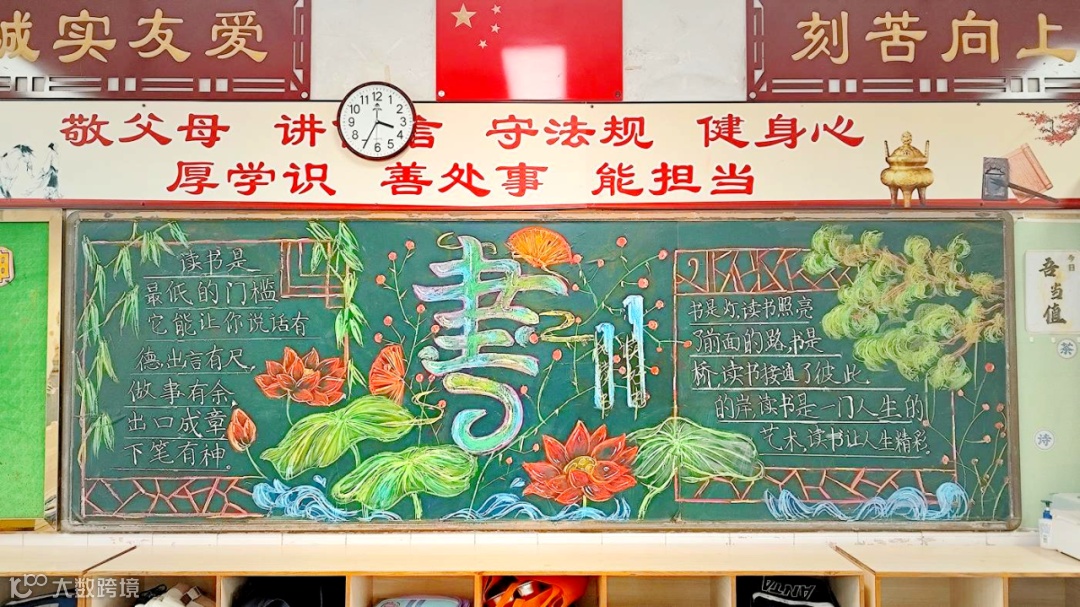 诚实友爱
刻苦向上
敬父母 讲 言 守法规 健身心
厚学识 善处事 能担当
12 1 2 3 4 5 6 7 8 9 10 11
读书是
最低的门槛
它能让你说话有
德,出言有尺,
做事有余,
出口成章
下笔有神。
书
书是灯,读书照亮
了前面的路,书是
桥,读书接通了彼此
的岸读书是一门人生的
艺术,读书让人生精彩.
今日
值
茶
诗
大数跨境